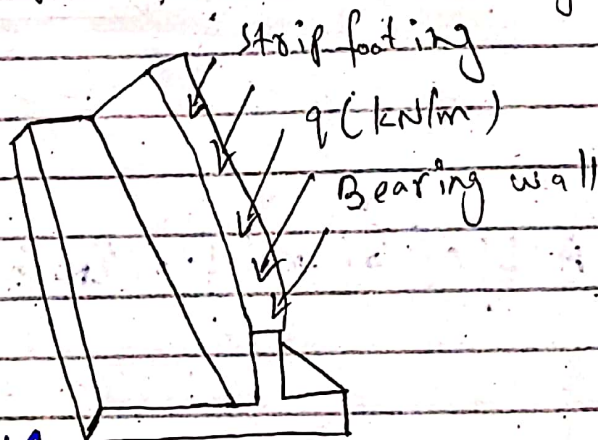 strip footing
q (kN/m)
Bearing wall